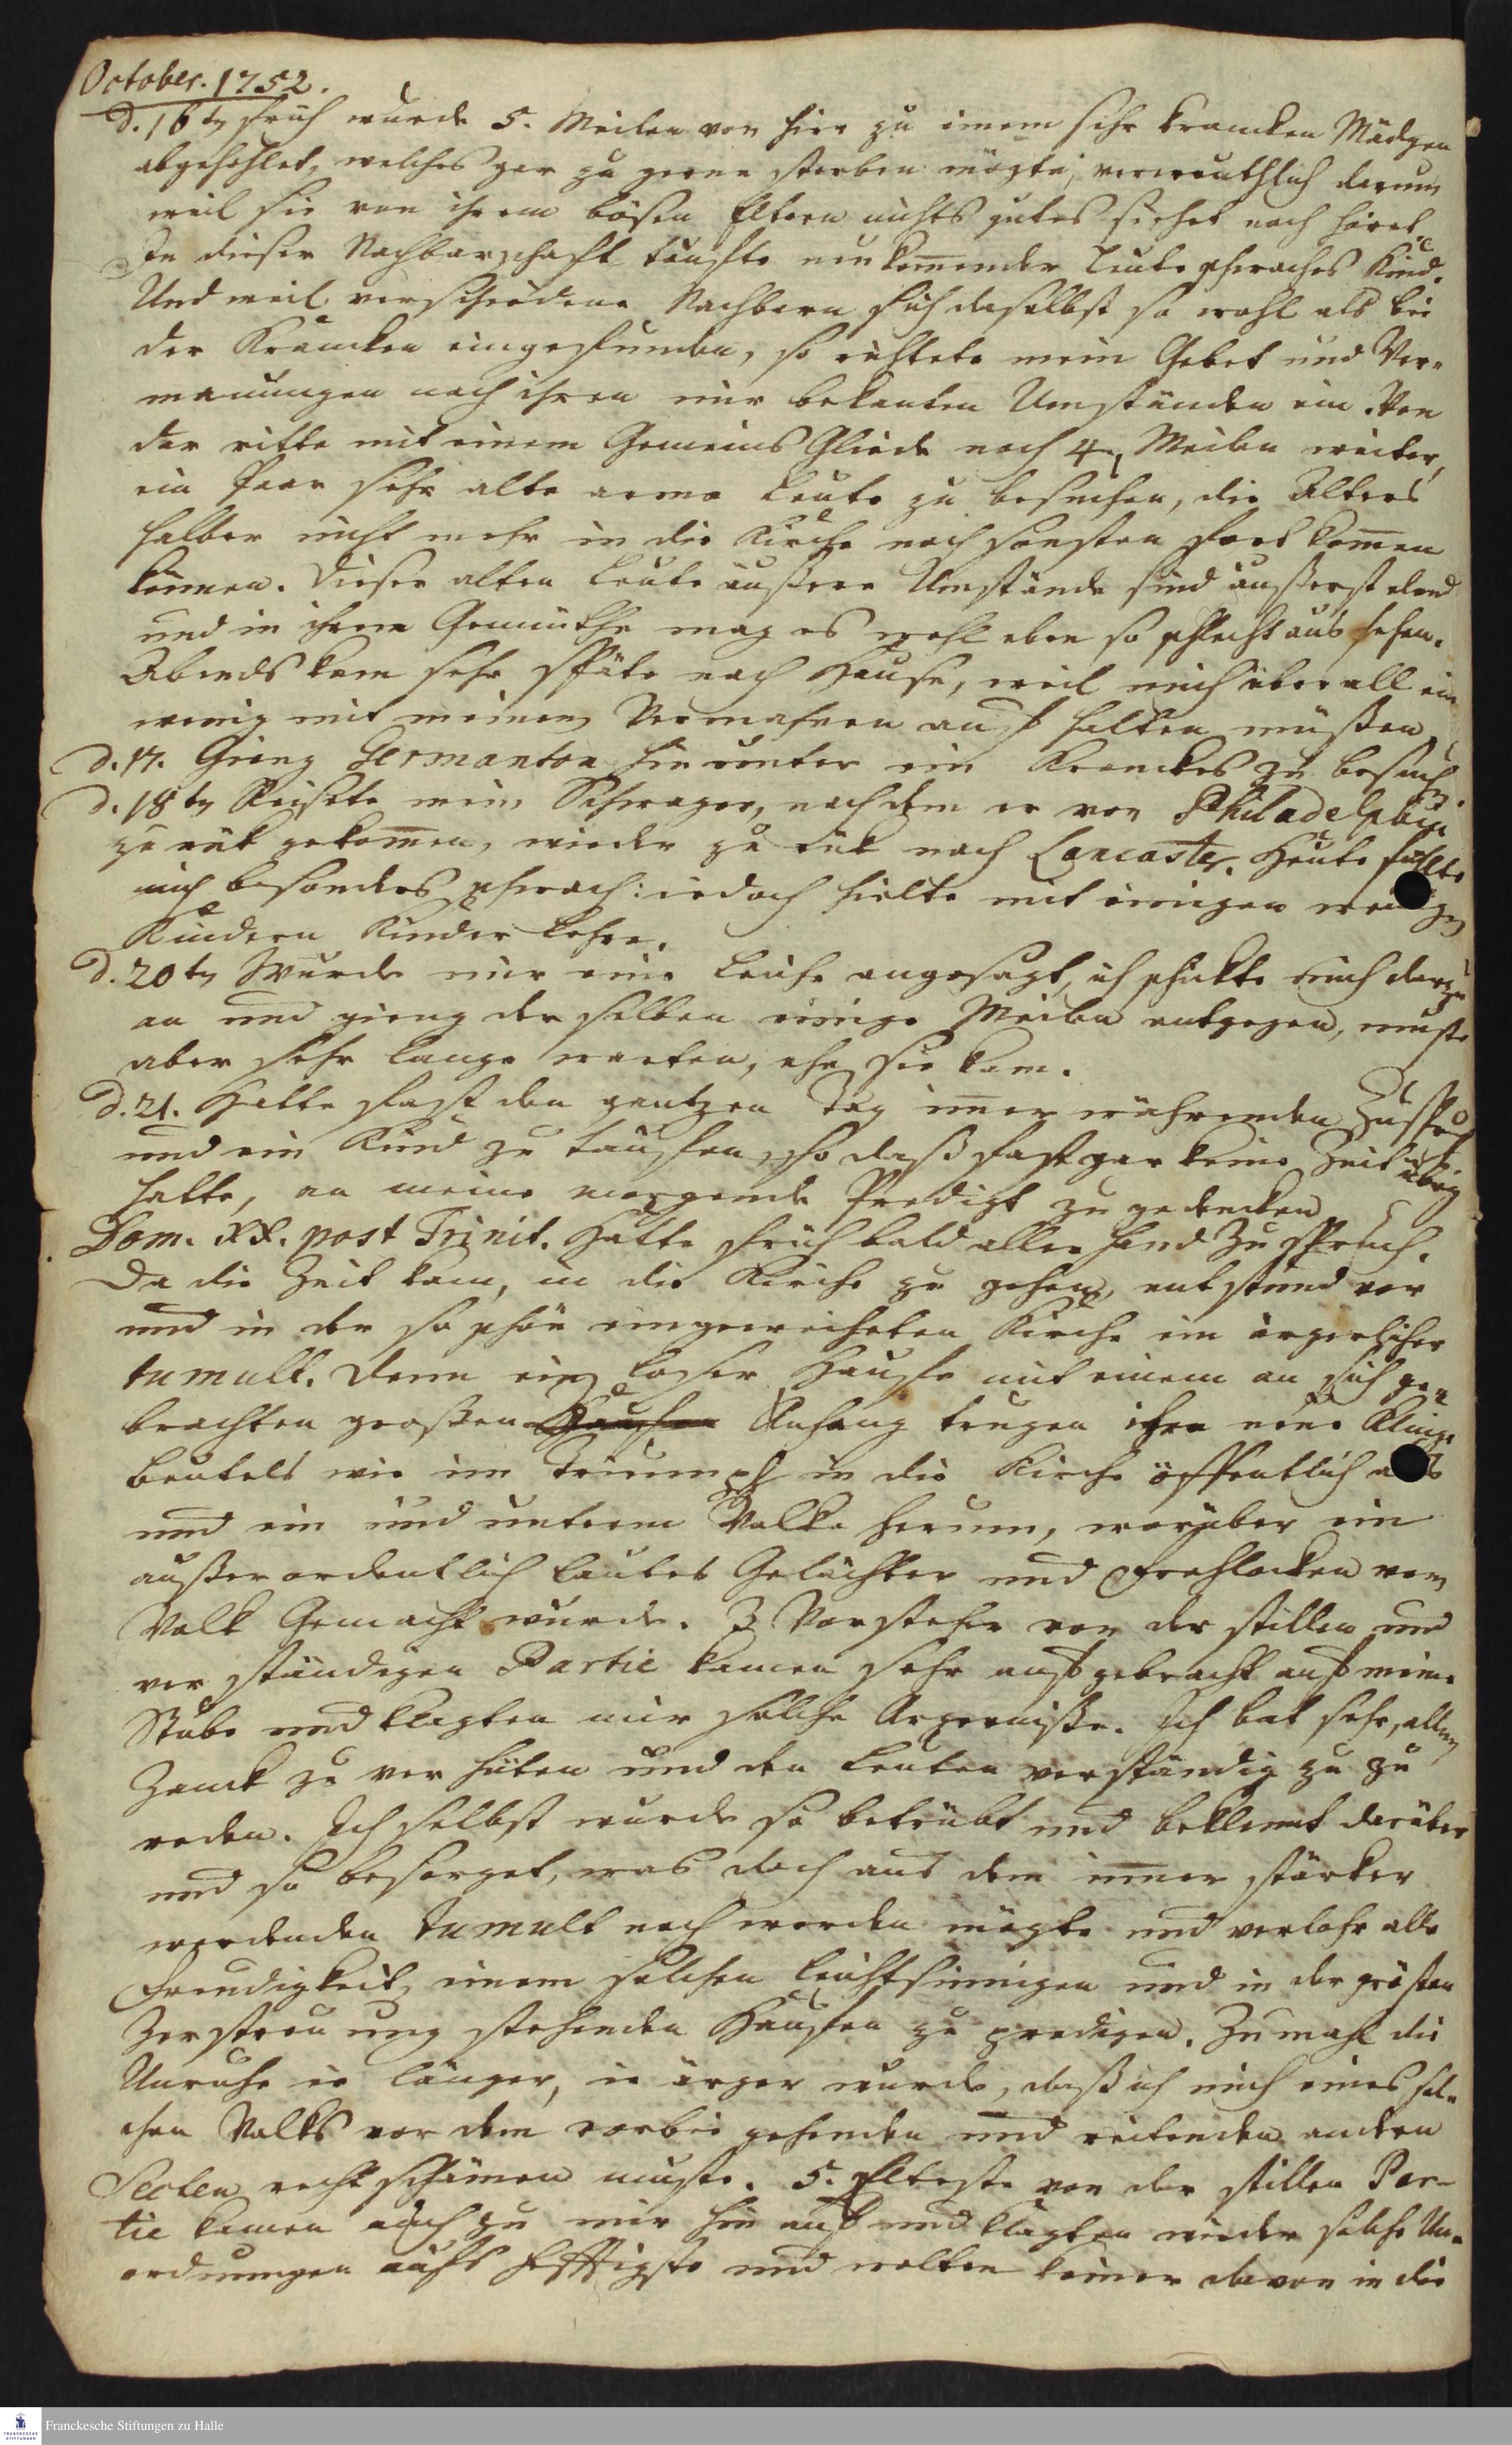 October. 1752.
d. 16tn früh wurde 5. Meilen von hier zu einem sehr krancken Mädgen
abgehohlet, welches gar zu gerne sterben mögte, vermuthlich darum
weil sie von ihrem bösen Eltern nichts gutes siehet noch höret.
In dieser Nachbarschaft tauffte neu kom̄ender Leute schwaches Kind.
Und weil verschiedene Nachbarn sich daselbst so wohl als bei
der Krancken eingefunden, so richtete mein Gebet und Ver-
manungen nach ihren mir bekanten Umständen ein. Von
dar ritte mit einem Gemeins Gliede noch 4. Meilen weiter,
ein Paar sehr alte arme Leute zu besuchen, die Alters
halber nicht mehr in die Kirche noch sonsten fort kom̄en
können. Dieser alten Leute äußere Umstände sind äußerst elend
und in ihrem Gemüthe mag es wohl eben so schlecht aus sehen.
Abends kam sehr späte nach Hause, weil mich überall ein
wenig mit meinem Vermahnen auf halten müßen.
d. 17. Gieng Germanton hinunter ein Kranckes zu besuchen.
d. 18tn Reisete mein Schwager, nachdem er von Philadelphia
zurük gekom̄en, wieder zu rük nach Lancaster. Heute fühlte
mich besonders schwach: iedoch hielte mit einigen wenigen
Kindern Kinder Lehre.
d. 20tn Wurde mir eine Leiche angesagt, ich schickte mich darzu
an und gieng derselben einige Meilen entgegen, muste
aber sehr lange warten, ehe sie kam.
d. 21. Hatte fast den gantzen Tag im̄er währenden Zuspruch
und ein Kind zu tauffen, so daß fast gar keine Zeit übrig
hatte, an meine morgende Predigt zu gedencken
Dom. XX. post Trinit. Hatte früh bald aller hand Zuspruch.
Da die Zeit kam, in die Kirche zu gehen, entstund vor
und in der so schön eingeweiheten Kirche ein ärgerlicher
tumult. Denn ein loser Hauffe mit einem an sich ge-
brachten großen Hauffen Anhang trugen ihre neue Klinge
beutels wie im Triumph in die Kirche öffentlich aus
und ein und unterm Volke herum, worüber ein
außerordentlich lautes Gelächter und Frohlocken vom
Volk Gemacht wurde. 3 Vorsteher von der stillen und
verständigen Partie kamen sehr aufgebracht auf meine
Stube und klagten mir solche Argerniße. Ich bat sehr, allen
Zanck zu ver hüten und den Leuten verständig zu zu
reden. Ich selbst wurde so betrübt und beklemt darüber
und so besorget, was doch aus dem im̄er stärker
werdenden tumult noch werden mögte und verlohr alle
Freudigkeit, einem solchen leichtsinnigen und in der grösten
Zerstreuung stehenden Hauffen zu predigen. Zumahl die
Unruhe ie länger, ie ärger wurde, daß ich mich eines sol-
chen Volks vor dem vorbei gehenden und reitenden andern
Secten recht schämen muste. 5. Elteste von der stillen Par-
tie kamen auch zu mir hin auf und klagten wieder solche Un-
ordnungen aufs hefftigste und wolten keiner davon in die
Franckesche Stiftungen zu Halle